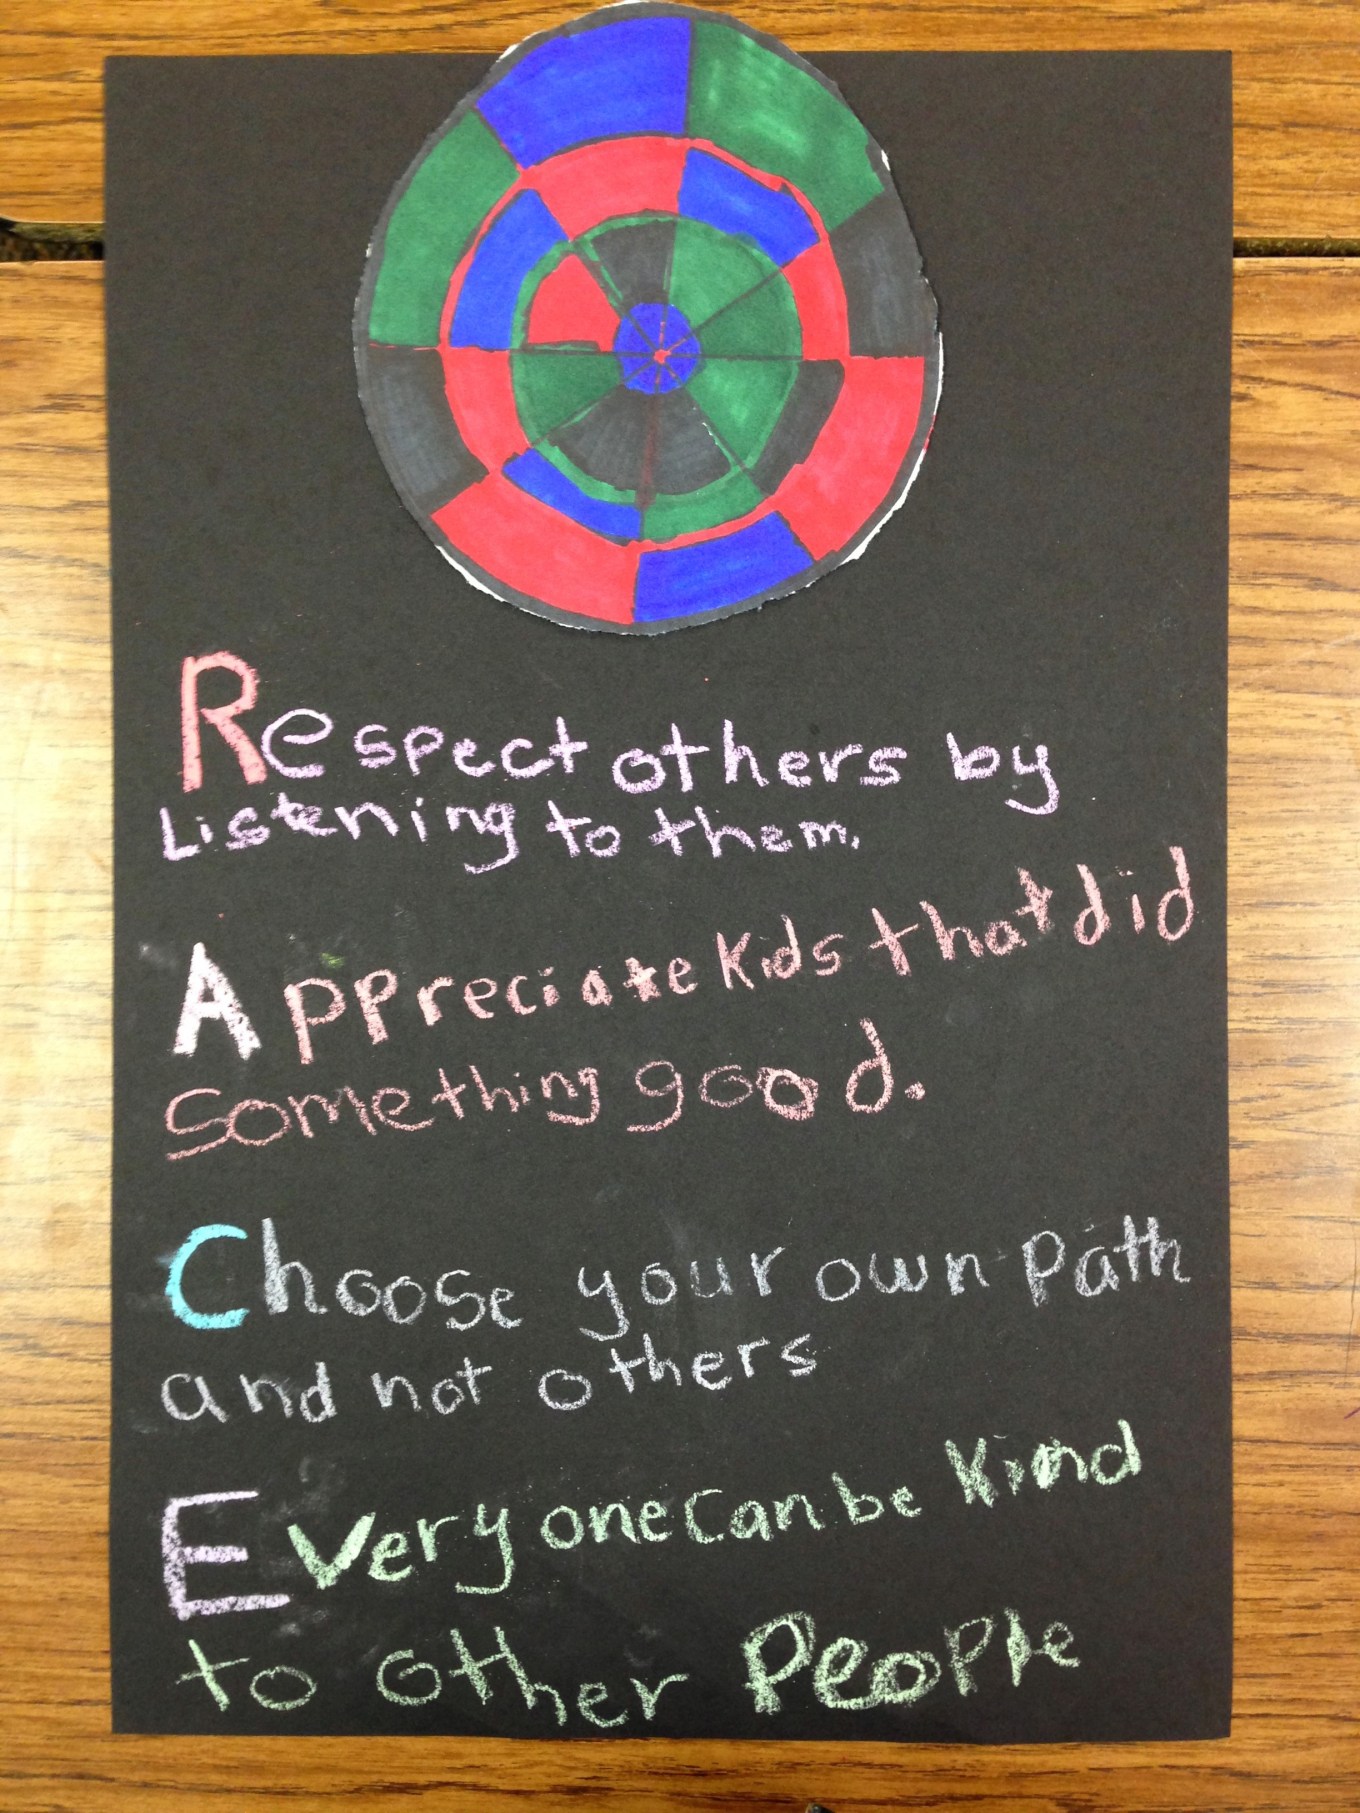 Respect others by
Listening to them.
Appreciate Kids that did
something good.
Choose your own Path
and not others
Every one can be Kind
to other PeoPle